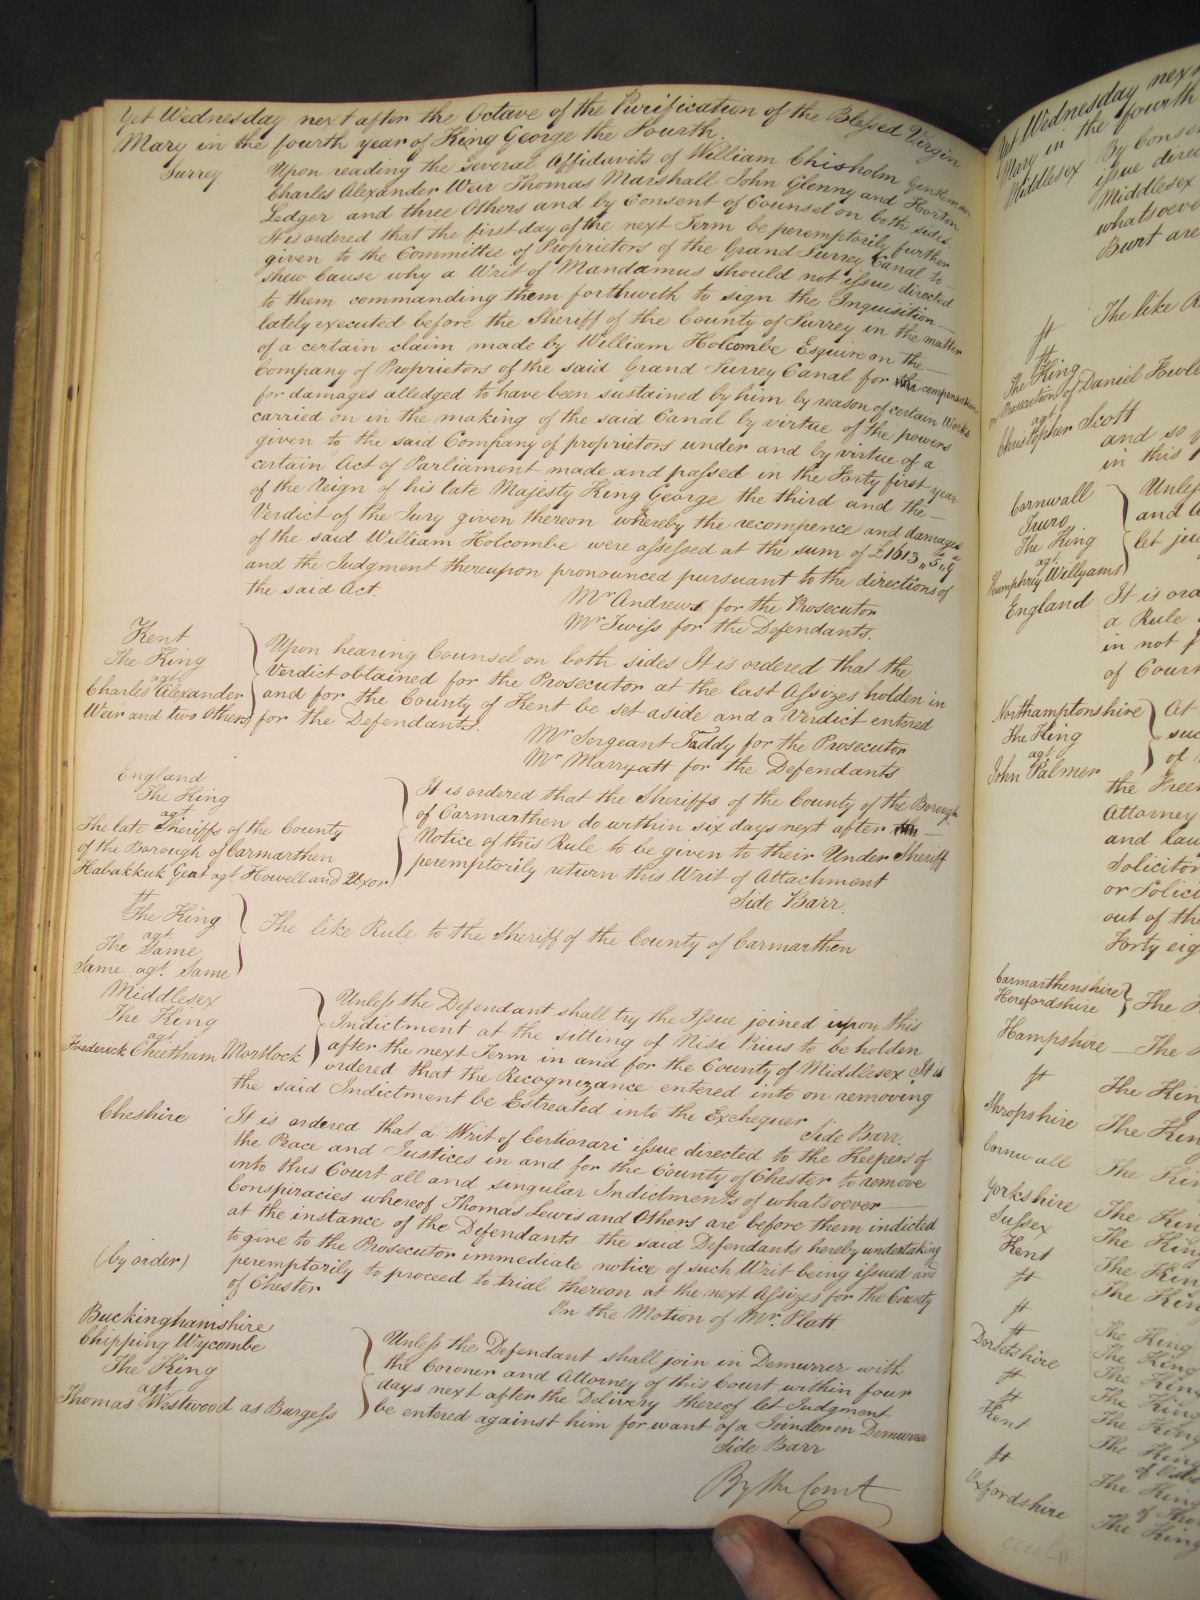 Yet Wednesday next after the Octave of the Purification of the Blessed Virgin
Mary in the fourth year of King George the Fourth.
Surrey
Upon reading the several Affidavits of William Chisholm Gentleman
Charles Alexander Weir Thomas Marshall John Glenny and Horton
Ledger and three Others and by Consent of Counsel on both sides
It is ordered that the first day of the next Term be peremptorily further
given to the Committee of Proprietors of the Grand Surrey Canal to
shew Cause why a Writ of Mandamus should not issue directed
to them commanding them forthwith to sign the Inquisition
lately executed before the Sheriff of the County of Surrey in the matter
of a certain claim made by William Holcombe Esquire on the
Company of Proprietors of the said Grand Surrey Canal for compensation
for damages alledged to have been sustained by him by reason of certain Works
carried on in the making of the said Canal by virtue of the powers
given to the said Company of proprietors under and by virtue of a
certain Act of Parliament made and passed in the Forty first year
of the Reign of his late Majesty King George the third and the
Verdict of the Jury given thereon whereby the recompence and damages
of the said William Holcombe were assessed at the sum of £1613,,5,,9
and the Judgment thereupon pronounced pursuant to the directions of
the said Act.
Mr Andrews for the Prosecutor
Mr Twiss for the Defendants.
Kent
The King
agt
Charles Alexander
Weir and two Others
Upon hearing Counsel on both sides It is ordered that the
Verdict obtained for the Prosecutor at the last Assizes holden in
and for the County of Kent be set aside and a Verdict entered
for the Defendants.
Mr Sergeant Taddy for the Prosecutor
Mr Marryatt for the Defendants
England
The King
agt
The late Sheriffs of the County
of the Borough of Carmarthen
Habakkuk Gent agt Howell and Uxor
It is ordered that the Sheriffs of the County of the Borough
of Carmarthen do within six days next after
Notice of this Rule to be given to their Under Sheriff
peremptorily return this Writ of Attachment
Side Barr.
ſt
The King
agt
The Same
Same agt Same
The like Rule to the Sheriff of the County of Carmarthen
Middlesex
The King
agt
Frederick Cheetham Mortlock
Unless the Defendant shall try the Issue joined upon this
Indictment at the sitting of Nisi Prius to be holden
after the next Term in and for the County of Middlesex It is
ordered that the Recognizance entered into on removing
the said Indictment be Estreated into the Exchequer
Side Barr.
Cheshire
It is ordered that a Writ of Certiorari issue directed to the Keepers of
the Peace and Justices in and for the County of Chester to remove
into this Court all and singular Indictments of whatsoever
Conspiracies whereof Thomas Lewis and Others are before them indicted
at the instance of the Defendants the said Defendants hereby undertaking
to give to the Prosecutor immediate notice of such Writ being issued and
(by order)
peremptorily to proceed to trial thereon at the next Assizes for the County
of Chester
On the Motion of Mr. Platt
Buckinghamshire
Chipping Wycombe
The King
agt
Thomas Westwood as Burgess
Unless the Defendant shall join in Demurrer with
the Coroner and Attorney of this Court within four
days next after the Delivery thereof let Judgment
be entered against him for want of a Joinder in Demurrer
Side Barr
By the Court
Yet Wednesday next
Mary in the fourth
Middlesex
By Conse
issue direc
Middlesex
whatsoeve
Burt are
ſt
The like R
ſt
The King
on Prosecution of Daniel Fowle
agt
Christopher Scott
and so
in this
Cornwall
Truro
The King
agt
Humphrey Willyams
Unless
and A
let jud
England
It is ord
a Rule
in not
of Court
Northamptonshire
The King
agt
John Palmer
At
suc
of
the Free
Attorney
and law
Solicitor
or Solici
out of th
Forty eig
Carmarthenshire
Herefordshire
The
Hampshire
The
ſt
The Kin
Shropshire
The Kin
Cornwall
The Kin
Yorkshire
The Kin
Sussex
The King
Kent
The Kin
ſt
The Kin
ſt
The King
ſt
The King
Dorsetshire
The King
ſt
The King
ſt
The King
Kent
The King
ſt
The King
Oxfordshire
The King